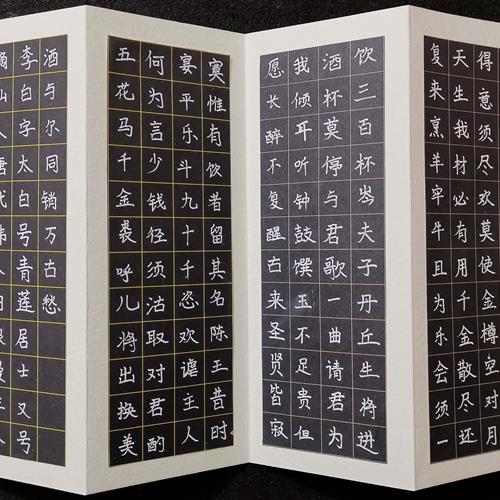 得意须尽欢莫使金樽空对月
天生我材必有用千金散尽还
复来烹羊宰牛且为乐会须一
饮三百杯岑夫子丹丘生将进
酒杯莫停与君歌一曲请君为
我倾耳听钟鼓馔玉不足贵但
愿长醉不复醒古来圣贤皆寂
寞惟有饮者留其名陈王昔时
宴平乐斗九十千恣欢谑主人
何为言少钱径须沽取对君酌
五花马千金裘呼儿将出换美
酒与尔同销万古愁
李白字太白号青莲居士又号